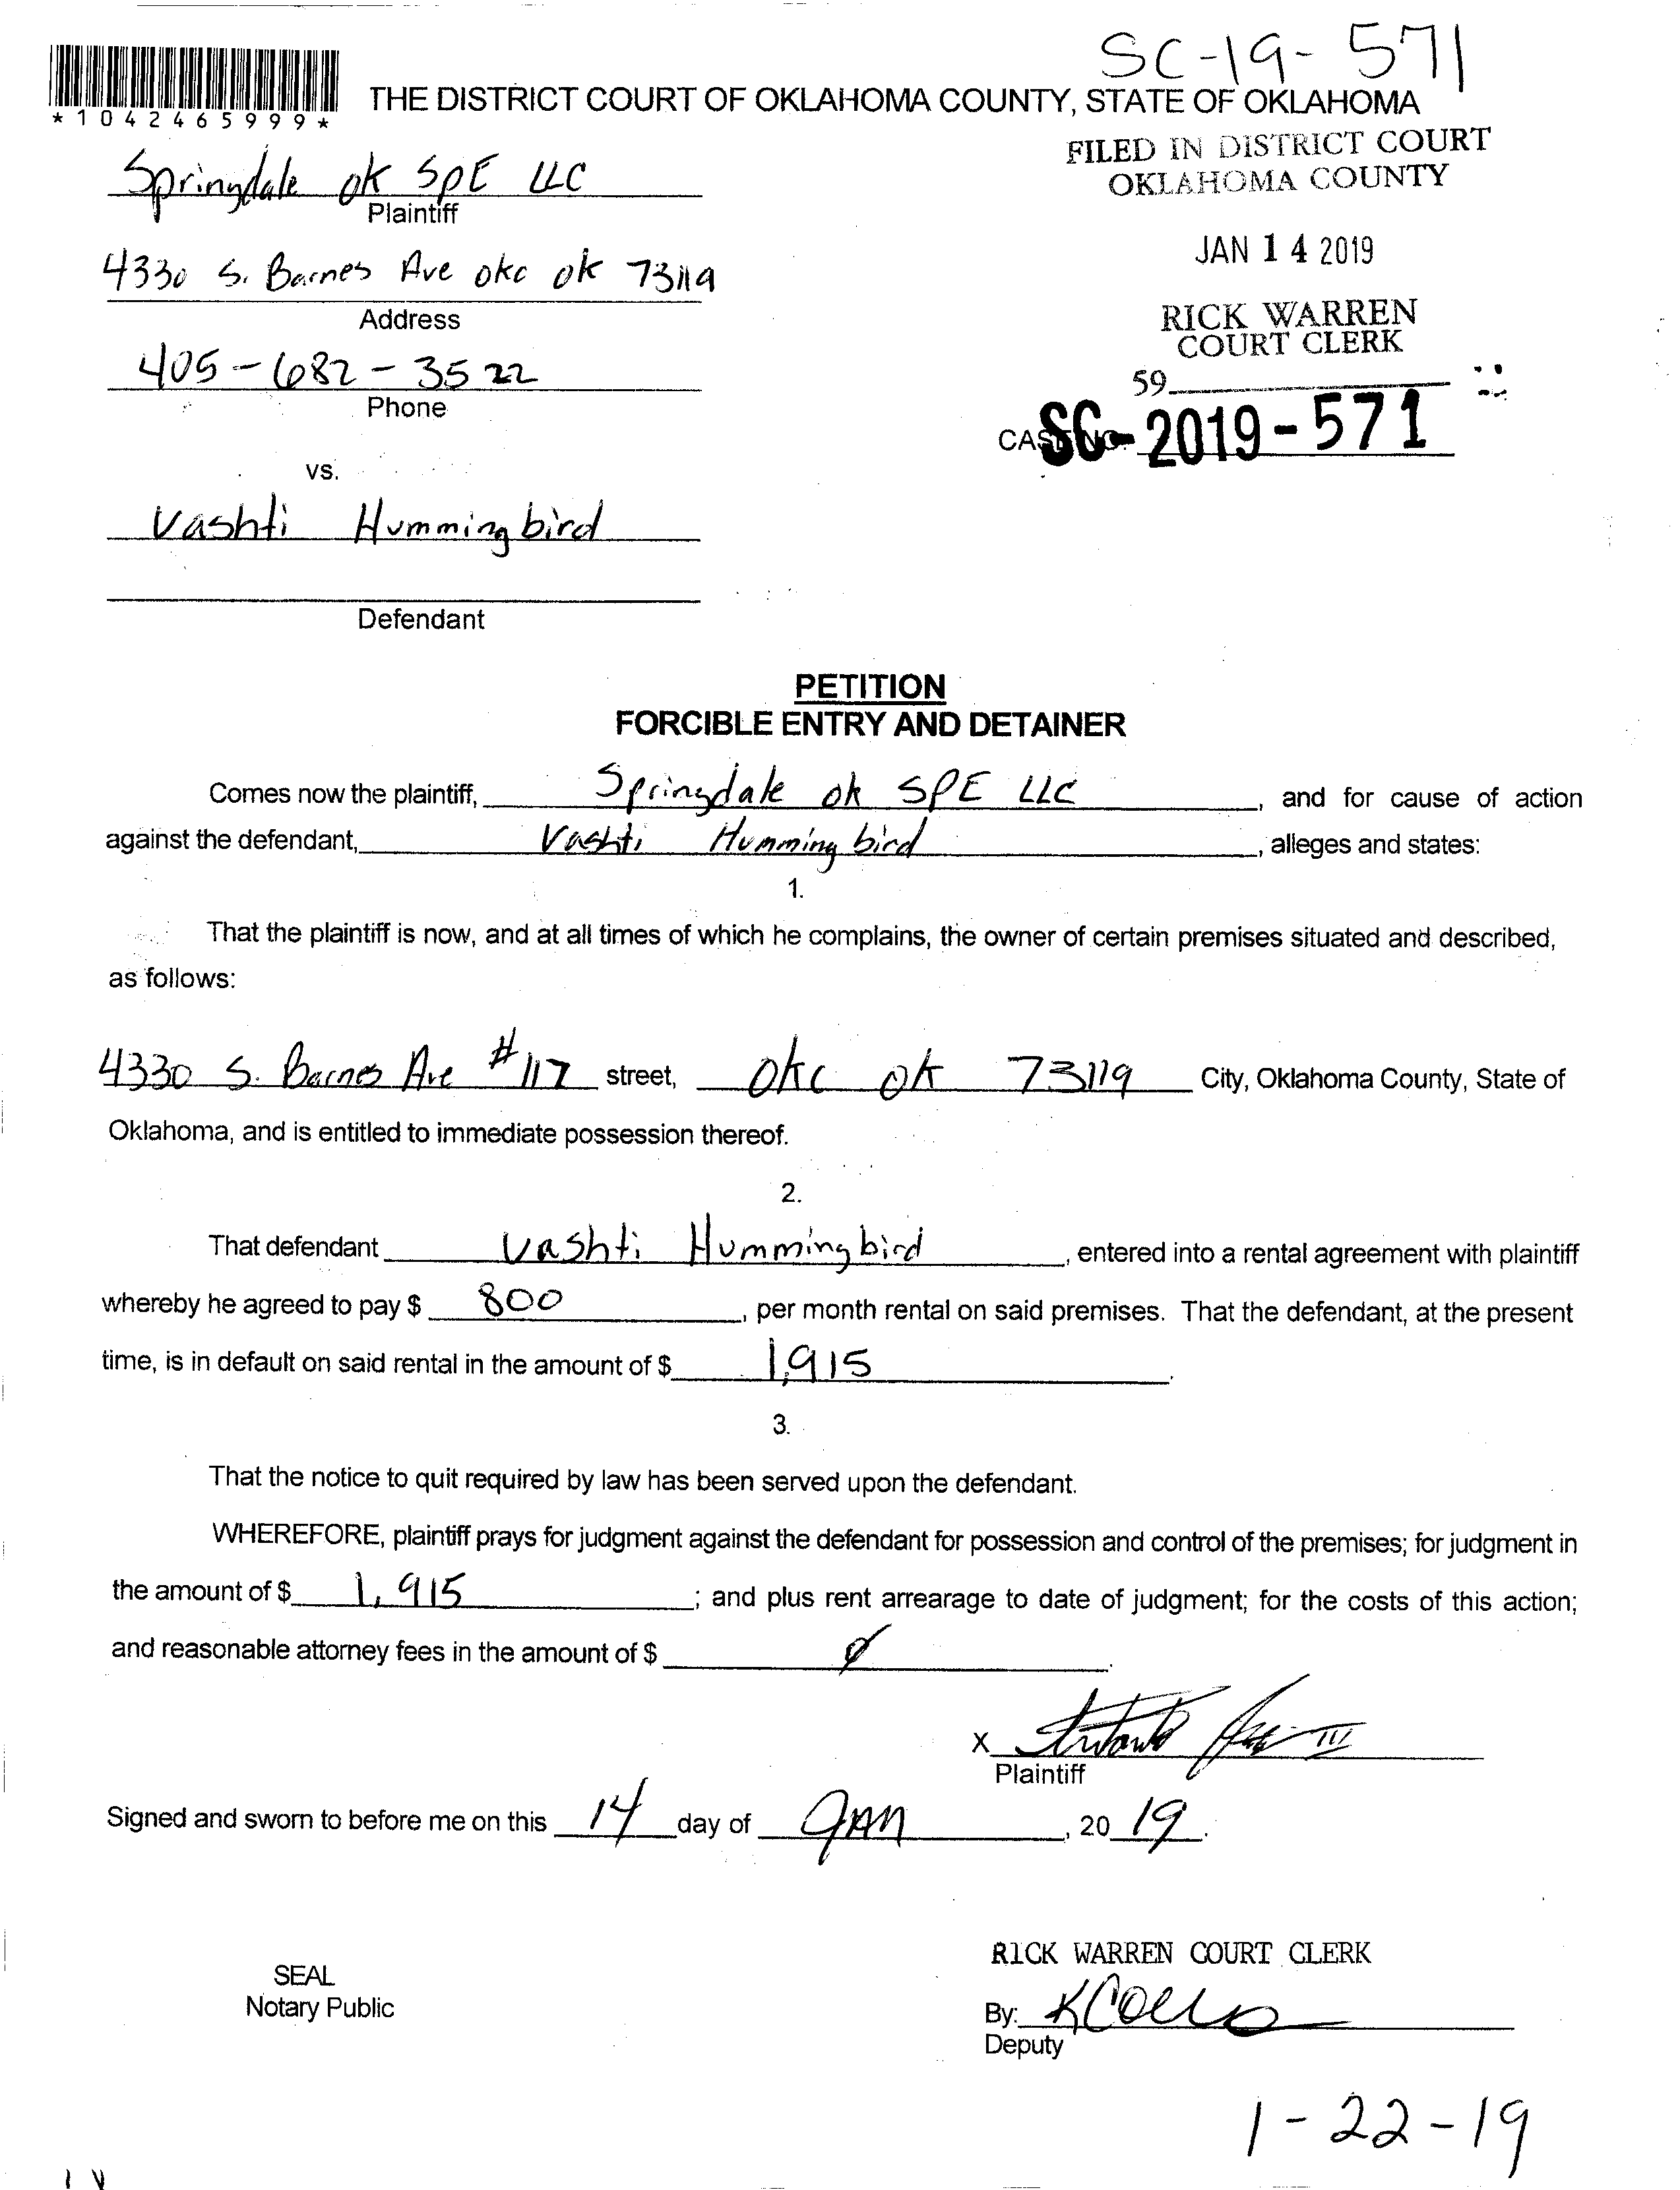 SC-19-571
*1042465999*
THE DISTRICT COURT OF OKLAHOMA COUNTY, STATE OF OKLAHOMA
FILED IN DISTRICT COURT
OKLAHOMA COUNTY
Springdale ok SPE LLC
Plaintiff
JAN 14 2019
4330 S. Barnes Ave okc ok 73119
Address
RICK WARREN
COURT CLERK
405-682-3522
Phone
59
CASE NO. SC-2019-571
vs.
Vashti Hummingbird
Defendant
PETITION
FORCIBLE ENTRY AND DETAINER
Comes now the plaintiff, Springdale ok SPE LLC, and for cause of action
against the defendant, Vashti Hummingbird, alleges and states:
1.
That the plaintiff is now, and at all times of which he complains, the owner of certain premises situated and described,
as follows:
4330 S. Barnes Ave #117 street, okc ok 73119 City, Oklahoma County, State of
Oklahoma, and is entitled to immediate possession thereof.
2.
That defendant Vashti Hummingbird, entered into a rental agreement with plaintiff
whereby he agreed to pay $ 800, per month rental on said premises. That the defendant, at the present
time, is in default on said rental in the amount of $ 1,915.
3.
That the notice to quit required by law has been served upon the defendant.
WHEREFORE, plaintiff prays for judgment against the defendant for possession and control of the premises; for judgment in
the amount of $ 1,915; and plus rent arrearage to date of judgment; for the costs of this action;
and reasonable attorney fees in the amount of $ 0.
X
Plaintiff
Signed and sworn to before me on this 14 day of JAN, 2019.
RICK WARREN COURT CLERK
SEAL
Notary Public
By:
Deputy
1-22-19